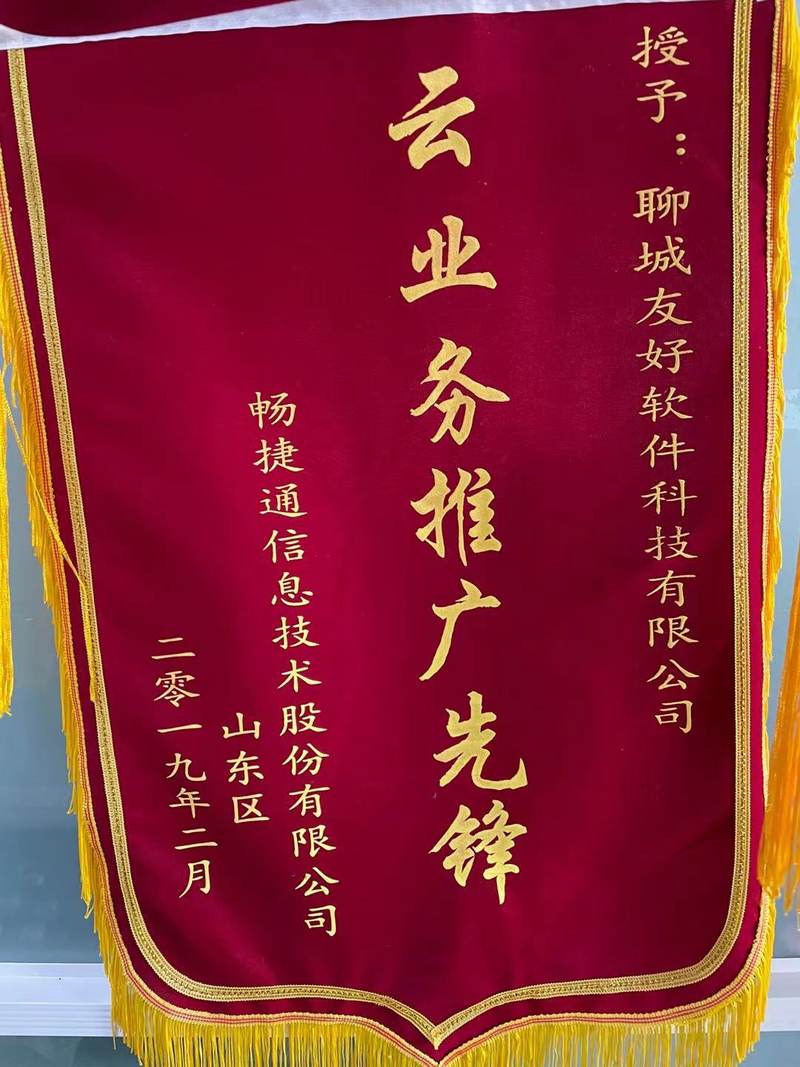 授予：聊城友好软件科技有限公司
云业务推广先锋
畅捷通信息技术股份有限公司
山东区
二零一九年二月